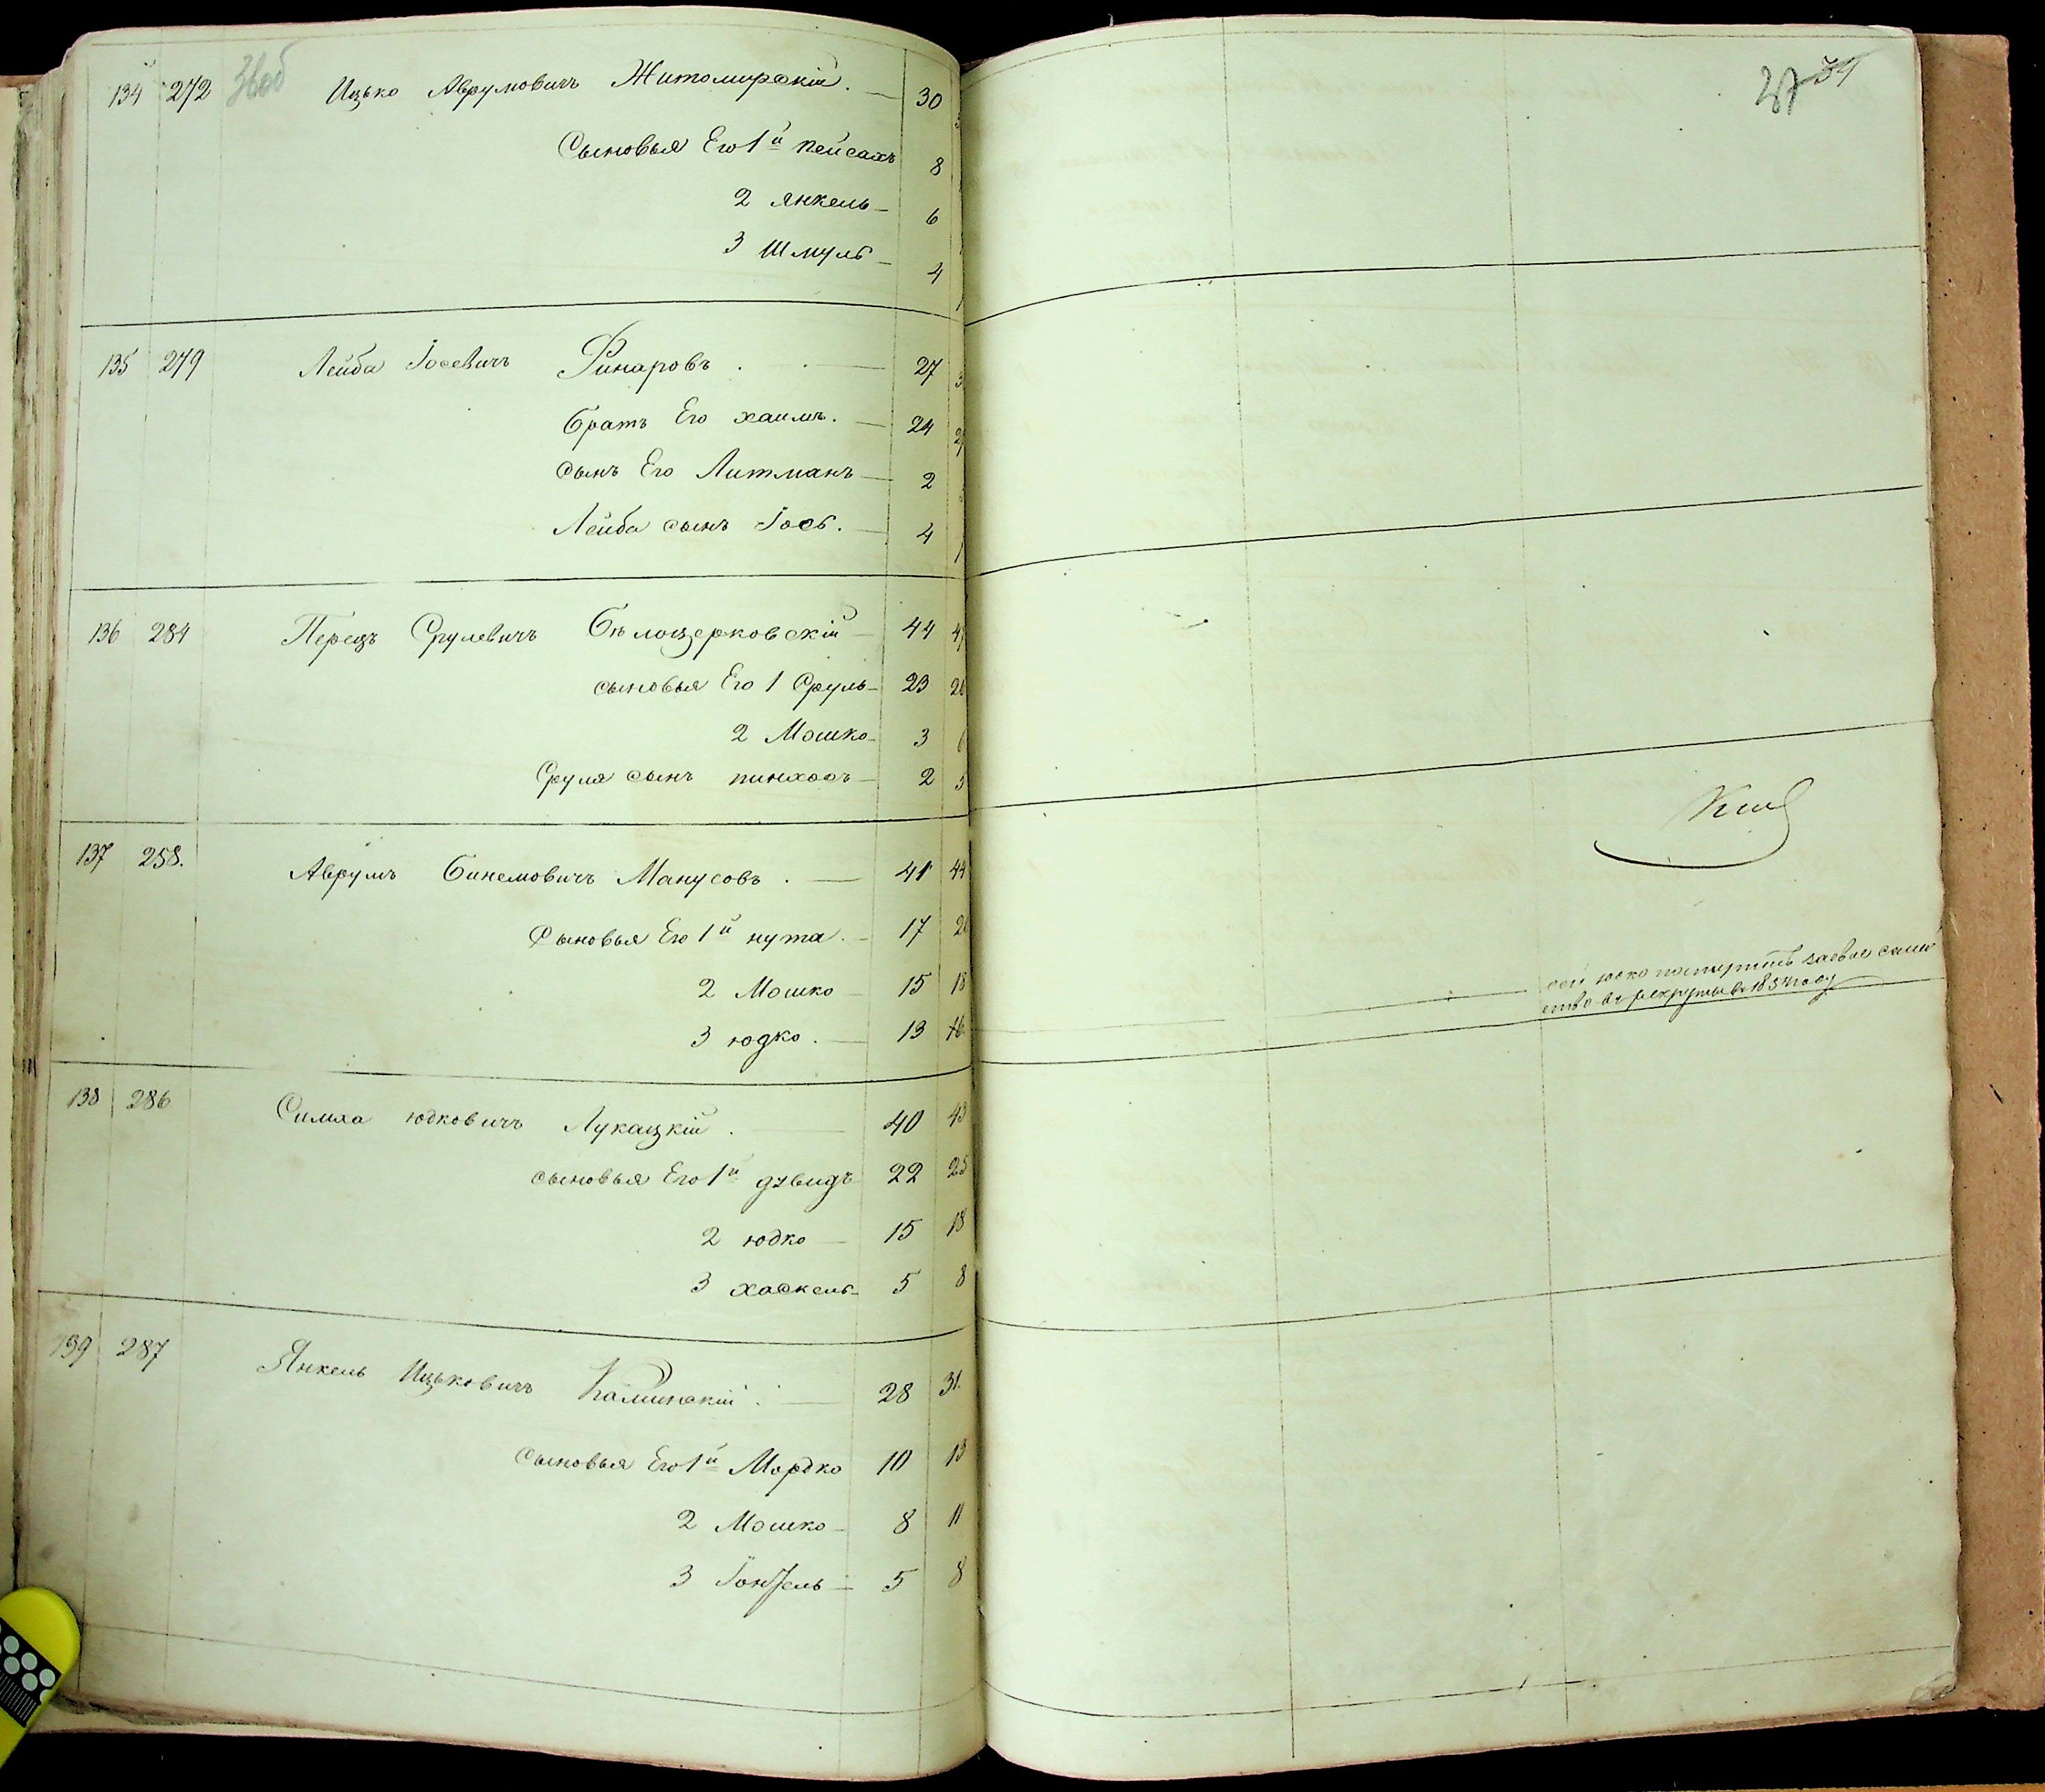 134 272 Ицько Аврумовичъ Житомирскій. — 30
Сыновья Его 1й Пейсахъ 8
2 Янкель — 6
3 Шмуль — 4
135 279 Лейба Іосевичъ Финаровъ . — 27 3
Братъ Его Хаимъ. — 24 2
сынъ Его Литманъ — 2
Лейба сынъ Іось. — 4
136 284 Перецъ Срулевичъ Бѣлоцерковскій — 44 4
сыновья Его 1 Сруль — 23 26
2 Мошко — 3 6
Сруля сынъ пинхосъ — 2 5
137 258. Аврумъ Бинемовичъ Манусовъ . — 41 44
Сыновья Его 1й нута. — 17 20
2 Мошко — 15 18
3 юдко. — 13 16
138 286 Симха юдковичъ Лукацкій . — 40 43
сыновья Его 1й дувидъ 22 25
2 юдко — 15 18
3 хаскель — 5 8
139 287 Янкель Ицьковичъ Каминскій . — 28 31.
Сыновья Его 1й Мордко 10 13
2 Мошко — 8 11
3 — 5 8
34
сей юдко
въ рекруты въ 1854 году